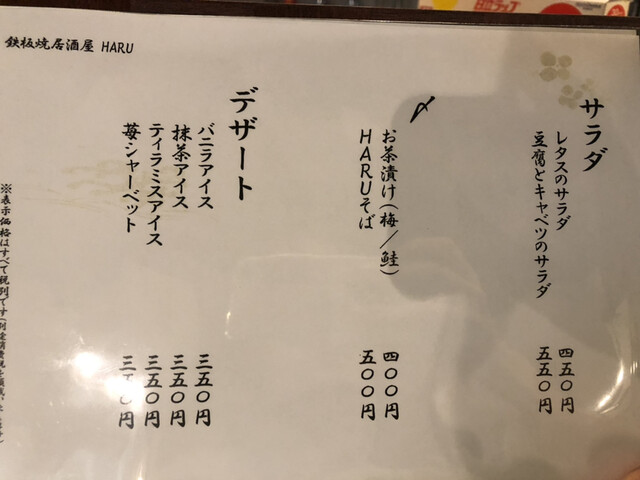 鉄板焼居酒屋 HARU
サラダ
レタスのサラダ 四五〇円
豆腐とキャベツのサラダ 五五〇円
〆
お茶漬け(梅/鮭) 四〇〇円
HARUそば 五〇〇円
デザート
バニラアイス 三五〇円
抹茶アイス 三五〇円
ティラミスアイス 三五〇円
苺シャーベット 三五〇円
※表示価格はすべて税別です